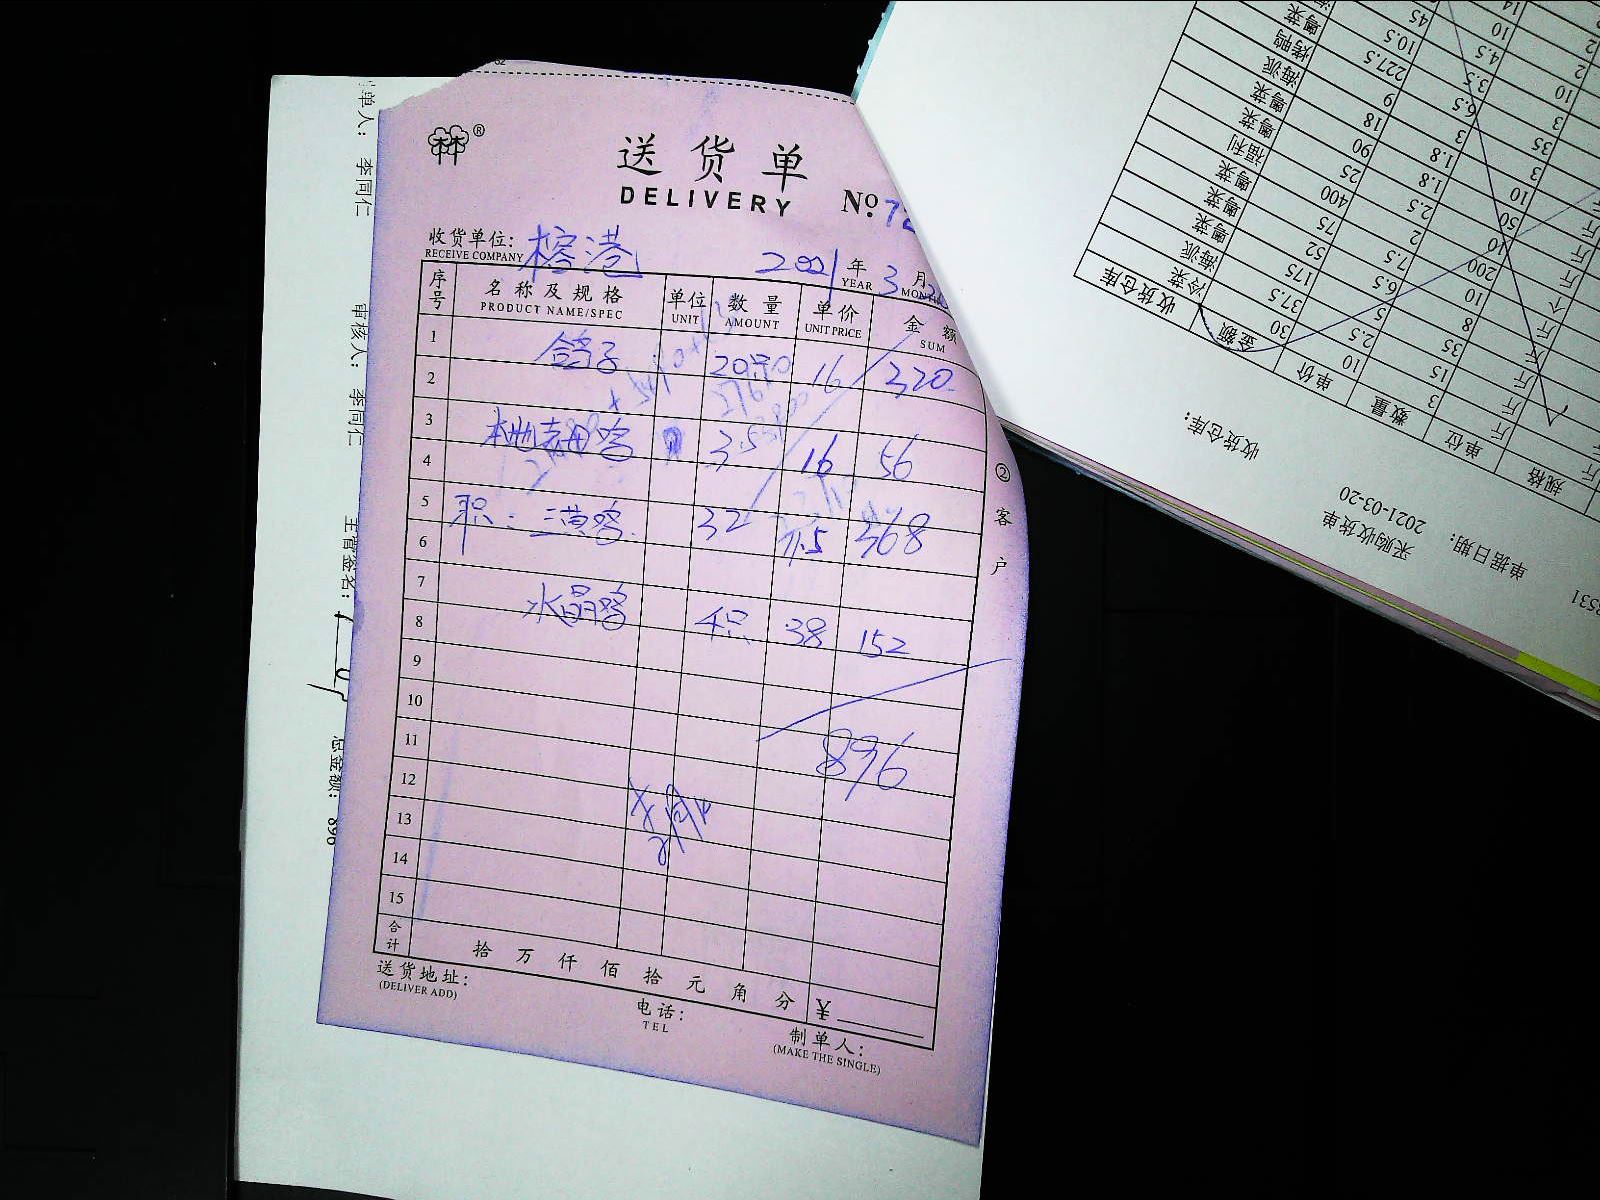 林®
送货单
DELIVERY
№ 72
收货单位: 榕港
RECEIVE COMPANY
2021 年 3 月
YEAR MONTH
序号 名称及规格 单位 数量 单价 金额
PRODUCT NAME/SPEC UNIT AMOUNT UNIT PRICE SUM
1 鸽子 20只 16 320
2
3 本地老母鸡 3.5 16 56
4
5 职: 三黄鸡 32 11.5 368
6
7 水晶鸡 4只 38 152
8
9
10
11 896
12
13
14
15
合计 拾 万 仟 佰 拾 元 角 分 ¥
送货地址:
(DELIVER ADD)
电话:
TEL
制单人:
(MAKE THE SINGLE)
② 客户
单人: 李同仁
审核人: 李同仁
主管签名:
总金额: 896
采购收货单
单据日期: 2021-03-20
收货仓库:
规格 单位 数量 单价 金额 收货仓库
斤 3 10 30 冷菜
斤 15 2.5 37.5 海派
斤 35 5 175 粤菜
斤 8 6.5 52 粤菜
个 10 7.5 75 粤菜
斤 200 2 400 福利
斤 10 2.5 25 粤菜
斤 50 1.8 90 粤菜
10 1.8 18 海派
3 3 9 烤鸭
35 6.5 227.5 粤菜
3 3.5 10.5
10 4.5 45